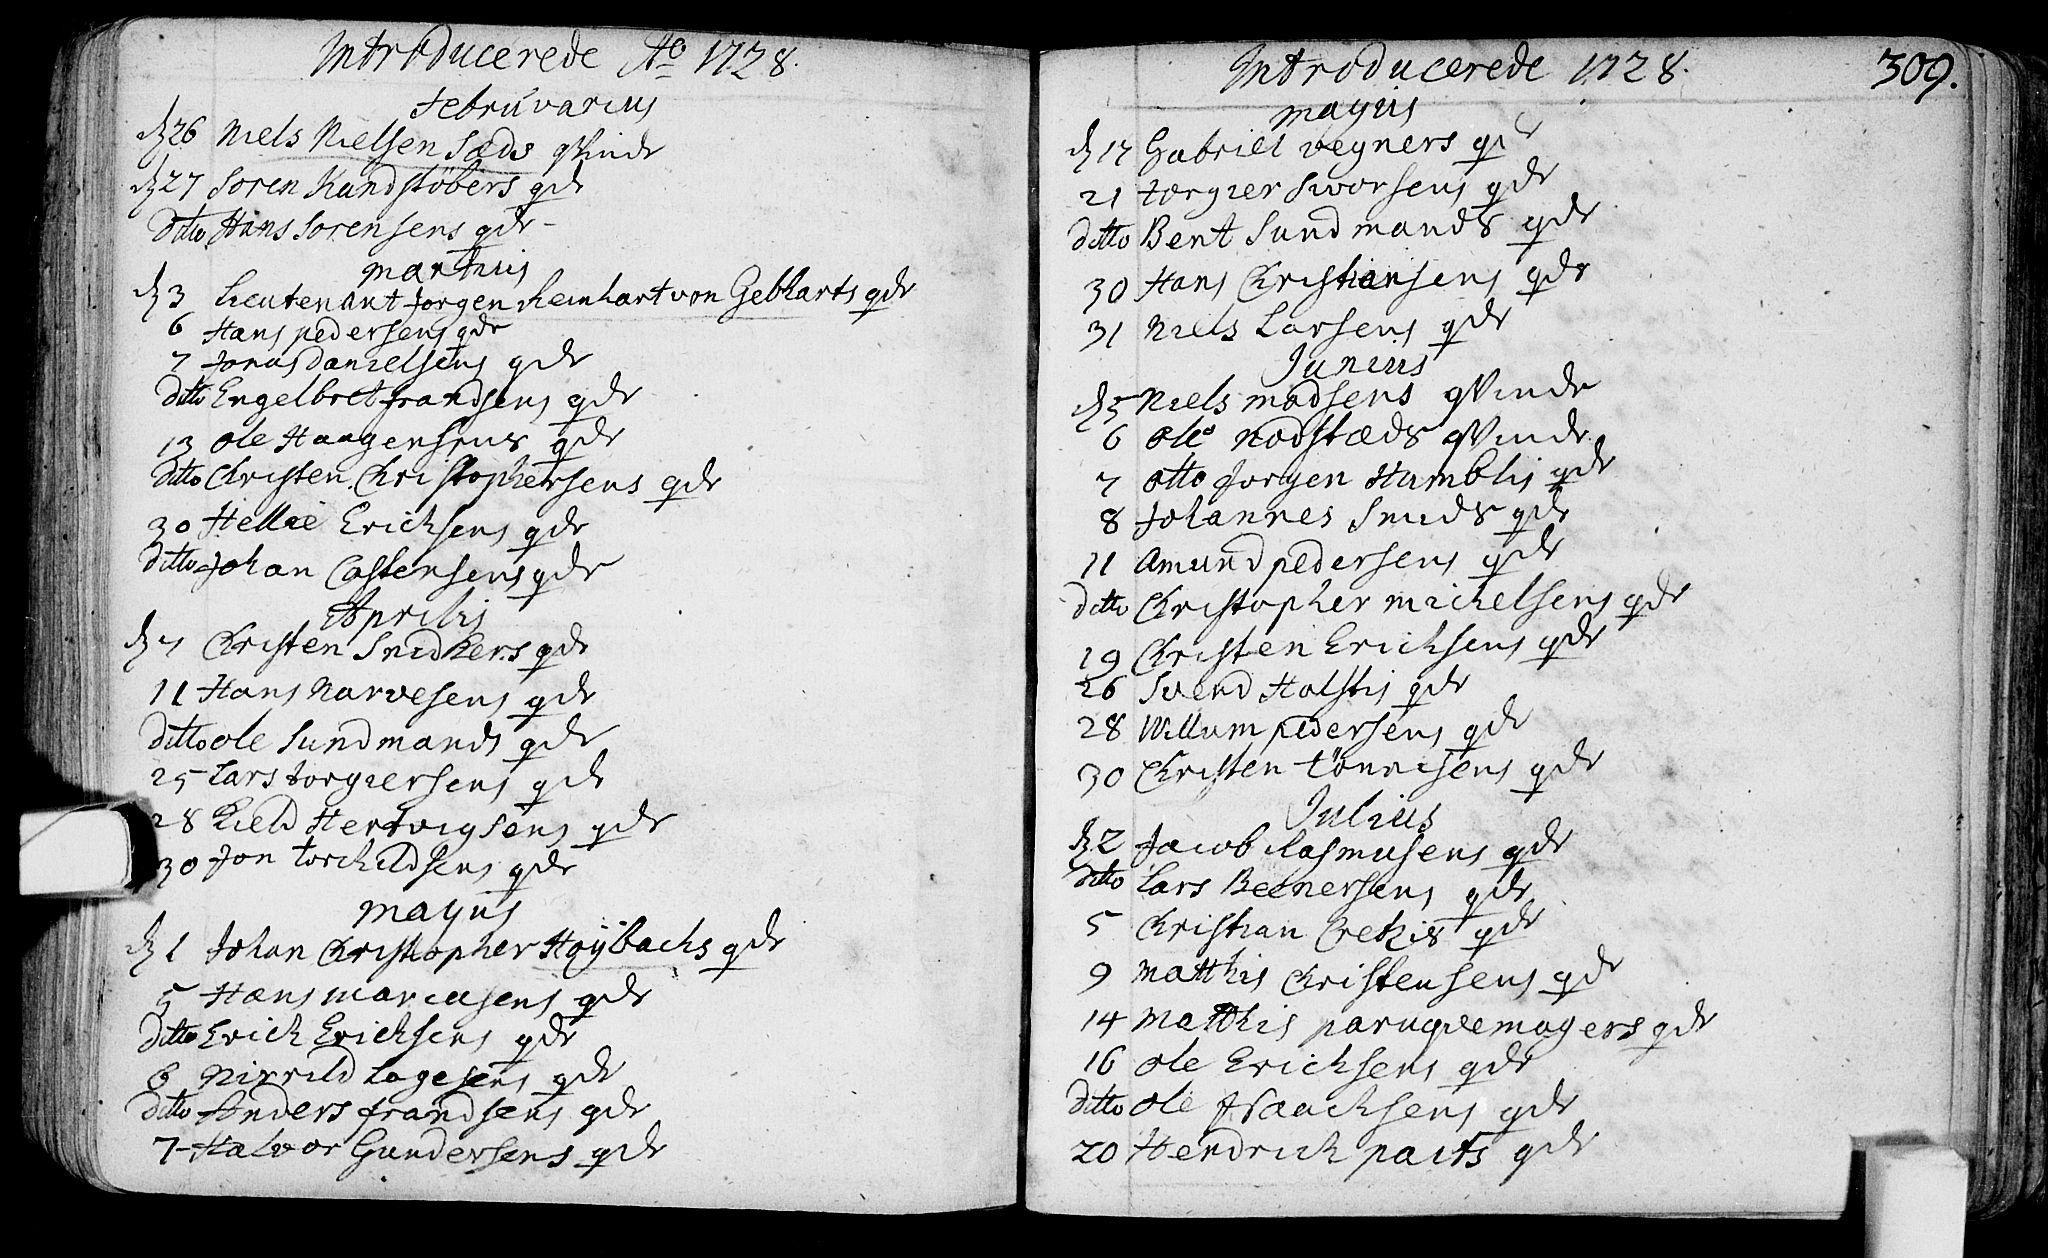 Introducerede Ao 1728.
Februvarius
d 26 Niels Nielsen Sæds qvinde
d 27 Soren Kandstøbers qde
Ditto Hans Sorensens qde
Martius
d 3 Lieutenant Jorgen Reinhart von Gebharts qde
6 Hans pedersens qde
7 Jonas Danielsens qde
Ditto Engelbret frandsens qde
13 Ole Haagensens qde
Ditto Christen Christophersens qde
30 Hellie Erichsens qde
Ditto Johan Castensens qde
Aprilis
d 7 Christen Snidkers qde
11 Hans Narvesens qde
Ditto Ole Sundmands qde
25 Lars torgiersens qde
28 Kield Hertvigsens qde
30 Jon torchildsens qde
Mayus
d 1 Johan Christopher Høÿbachs qde
5 Hans mariusens qde
Ditto Erich Erichsens qde
6 Nirrild Lagesens qde
Ditto Anders frandsens qde
7 Halvor Gundersens qde
Introducerede 1728.
309.
Mayus
d 17 Gabriel vegners qde
21 torgier Sworsens qde
Ditto Bent Sundmands qde
30 Hans Christiansens qde
31 Niels Larsens qde
Junius
d 5 Niels madsens qvinde
6 Ole Nodstæds qvinde
7 Otto Jorgen Hamblis qde
8 Johannes Smids qde
11 Amund pedersens qde
Ditto Christopher michelsens qde
19 Christen Erichsens qde
26 Svend Holstis qde
28 Willum pedersens qde
30 Christen tönnisens qde
Julius
d 2 Jacob Rasmusens qde
Ditto Lars Beenersens qde
5 Christian Crekis qde
9 Matthis Christensens qde
14 Matthis paruqvemagers qde
16 Ole Erichsens qde
Ditto Ole Isaachsens qde
20 Hendrich paits qde